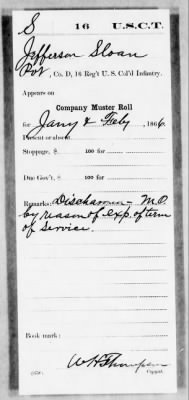 S 16 U.S.C.T.
Jefferson Sloan
Pvt, Co. D, 16 Reg't U. S. Col'd Infantry.
Appears on
Company Muster Roll
for Jany & Feby, 1866.
Present or absent
Stoppage, $ 100 for
Due Gov't, $ 100 for
Remarks: Discharge – M.O.
by reason of exp. of term
of service.
Book mark:
W H Thompson
(358) Copyist.